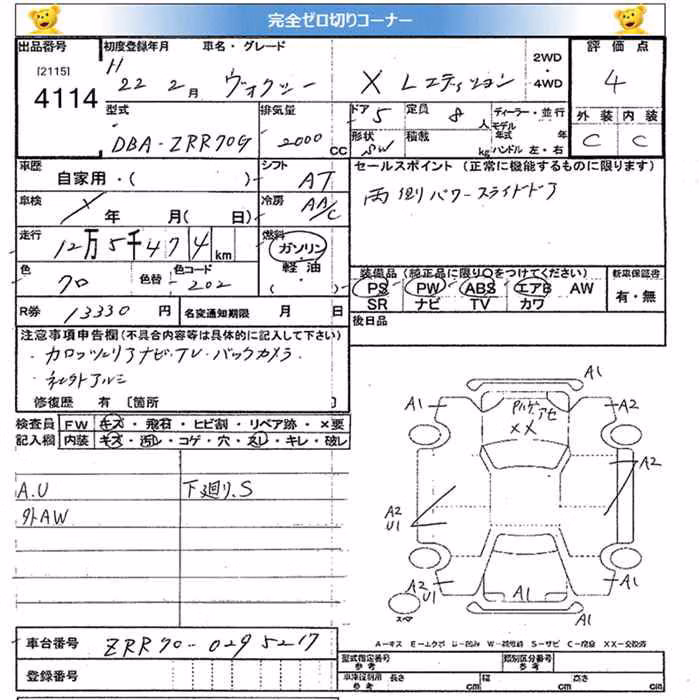 完全ゼロ切りコーナー
出品番号 初度登録年月 車名・グレード 2WD・4WD 評価点
[2115]
4114
H 22年 2月 ヴォクシー X Lエディション 4
型式 排気量 ドア 5 定員 8人 ディーラー・並行 外装 内装
DBA-ZRR70G 2000CC 形状 SW 積載 kg モデル年式 年 ハンドル 左・右 C C
車歴 自家用・( ) シフト AT セールスポイント (正常に機能するものに限ります)
両側パワースライドドア
車検 年 月(日) 冷房 AA/C
走行 12万5千474km 燃料 ガソリン・軽油・( )
装備品(純正品に限り○をつけてください) 新車保証書
色 クロ 色替 色コード 202
PS PW ABS エアB AW 有・無
SR ナビ TV カワ
R券 13330円 名変通知期限 月 日
後日品
注意事項申告欄(不具合内容等は具体的に記入して下さい)
・カロッツェリアナビ・TV・バックカメラ
・社外アルミ
修復歴 有 [箇所 ]
検査員 FW キズ・飛石・ヒビ割・リペア跡・×要
記入欄 内装 キズ・汚レ・コゲ・穴・スレ・キレ・破レ
A.U 下廻り.S
外AW
A1
A1 A2
ハゲ アセ
XX
A2
A2
U1
A2
U1
A1
A1
A1
スペア
A-キズ E-エクボ U-凹み W-補修跡 S-サビ C-腐食 XX-交換済
車台番号 ZRR70-0295217
登録番号
型式指定番号 参考 類別区分番号 参考
車検証別用 参考 長さ cm 幅 cm 高さ cm